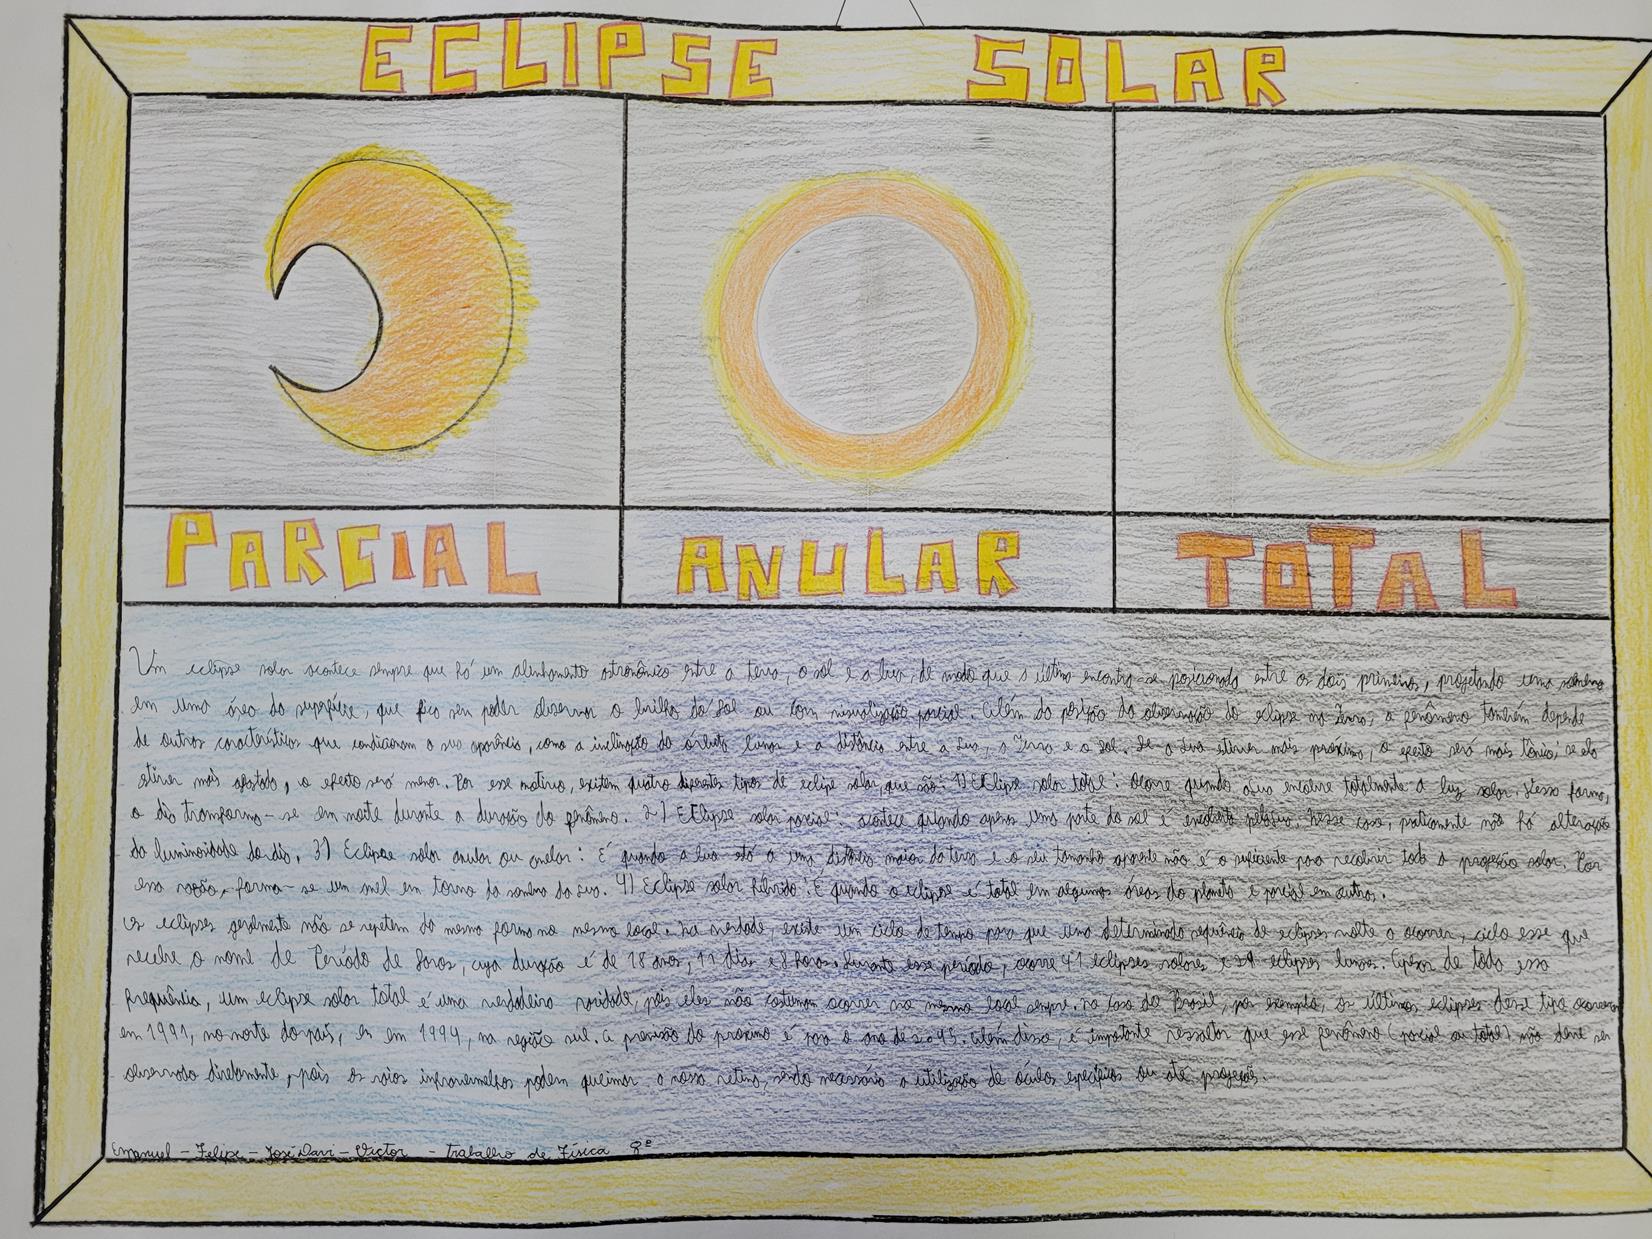 ECLIPSE SOLAR
PARCIAL ANULAR TOTAL
Um eclipse solar acontece sempre que há um alinhamento astronômico entre a terra, o sol e a lua, de modo que s último encontra-se posicionado entre os dois primeiros, projetando uma
em uma área da superfície, que fica sem poder observar o brilho do Sol ou com visualização parcial. Além da posição da observação do eclipse na Terra, a fenômeno também depende
de outras características que condicionam a sua aparência, como a inclinação da órbita lunar e a distância entre a Lua, a Terra e o Sol. Se a Lua estiver mais próxima, o efeito será mais se ela
estiver mais afastada, o efeito será menor. Por esse motivo, existem quatro diferentes tipos de eclipe solar, que são: 1) EClipse solar total: Ocorre quando a Lua encobre totalmente a luz solar. Dessa forma,
o dia transforma-se em noite durante a duração do fenômeno. 2) EClipse solar parcial: acontece quando apenas uma parte do sol é encoberta pela lua. Nesse caso, praticamente não há alteração
da luminosidade do dia. 3) Eclipse solar anular ou anelar: É quando a lua está a uma distância maior da terra e o seu tamanho aparente não é o suficiente para recobrir todo a projeção solar. Por
essa razão, forma-se um anel em torno da sombra da Lua. 4) Eclipse solar híbrido: É quando o eclipse é total em algumas áreas do planeta e parcial em outras.
Os eclipses geralmente não se repetem da mesma forma no mesmo local. Na verdade, existe um ciclo de tempo para que uma determinada sequência de eclipses volte a ocorrer, ciclo esse que
recebe o nome de Período de Saros, cuja duração é de 18 anos, 11 dias e 8 horas. Durante esse período, ocorre 41 eclipses solares e 29 eclipses lunares. Apesar de toda essa
frequência, um eclipse solar total é uma verdadeira raridade, pois eles não costumam ocorrer no mesmo local sempre. No caso do Brasil, por exemplo, os últimos eclipses desse tipo ocorreram
en 1991, no norte do país, e em 1994, na região sul. A previsão do proximo é para o ano de 2045. Além disso, é importante ressaltar que esse fenômeno (parcial ou total) não deve ser
observado diretamente, pois os raios infravermelhos podem queimar a nossa retina, sendo necessário a utilização de óculos específicos ou até projeções.
Emanuel - Felipe - José Davi - Victor - trabalho de Física 9º